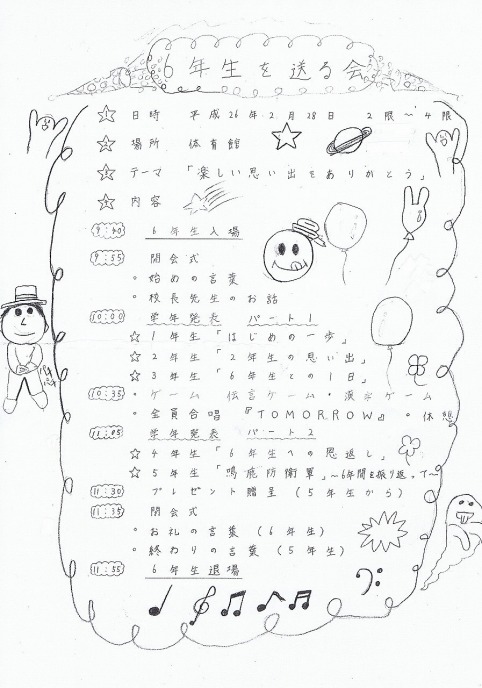 6年生を送る会
1 日時 平成26年2月28日 2限〜4限
2 場所 体育館
3 テーマ 「楽しい思い出をありがとう」
4 内容
9:40 6年生入場
9:55 開会式
・始めの言葉
・校長先生のお話
10:00 学年発表 パート1
☆1年生「はじめの一歩」
☆2年生「2年生の思い出」
☆3年生「6年生との1日」
10:35 ・ゲーム 伝言ゲーム・漢字ゲーム
・全員合唱『TOMORROW』 ・休憩
11:05 学年発表 パート2
☆4年生「6年生への恩返し」
☆5年生「鳴鹿防衛軍」〜6年間を振り返って〜
11:30 プレゼント贈呈(5年生から)
11:35 閉会式
・お礼の言葉(6年生)
・終わりの言葉(5年生)
11:55 6年生退場